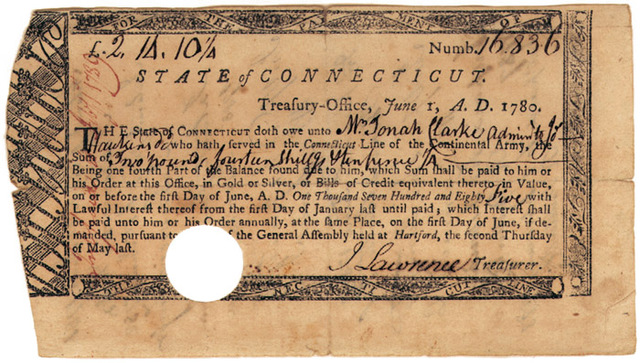 FOR THE PAYMENT OF
£.2. 14. 10¼ Numb. 16.836
STATE of CONNECTICUT.
Treasury-Office, June 1, A. D. 1780.
THE State of CONNECTICUT doth owe unto Mr Jonah Clarke
who hath served in the Connecticut Line of the Continental Army, the
Sum of Two pounds fourteen shills
Being one fourth Part of the Balance found due to him, which Sum shall be paid to him or
his Order at this Office, in Gold or Silver, or Bills of Credit equivalent thereto in Value,
on or before the first Day of June, A. D. One Thousand Seven Hundred and Eighty Five with
Lawful Interest thereof from the first Day of January last until paid; which Interest shall
be paid unto him or his Order annually, at the same Place, on the first Day of June, if de-
manded, pursuant to of the General Assembly held at Hartford, the second Thursday
of May last.
J Lawrence Treasurer.
THE CONNECTICUT LINE